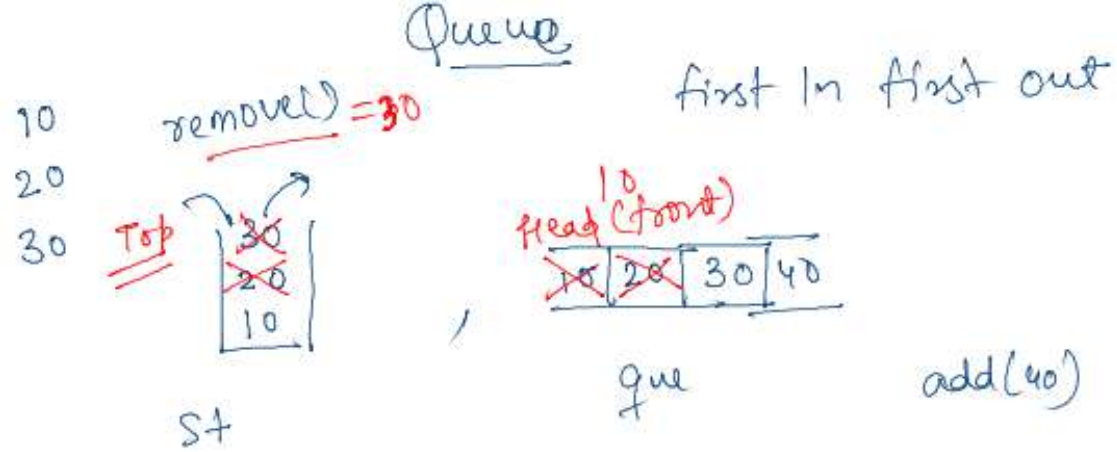 Queue
first In first out
10
remove() = 30
20
30
Top
30
20
10
St
,
10
Head (front)
10 20 30 40
que
add(40)